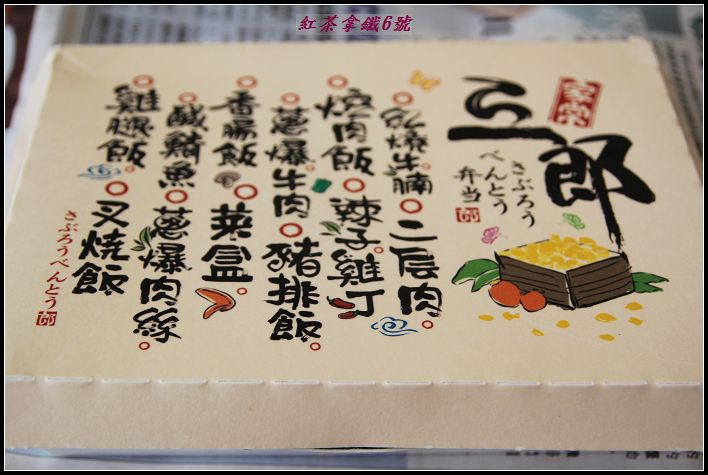 紅茶拿鐵6號
三郎
さぶろう
べんとう
弁当 郎
紅燒牛腩 二层肉
焢肉飯 辣子雞丁
蔥爆牛肉 豬排飯
香腸飯 菜盒
鹹鯖魚 蔥爆肉絲
雞腿飯 叉燒飯
さぶろうべんとう 郎